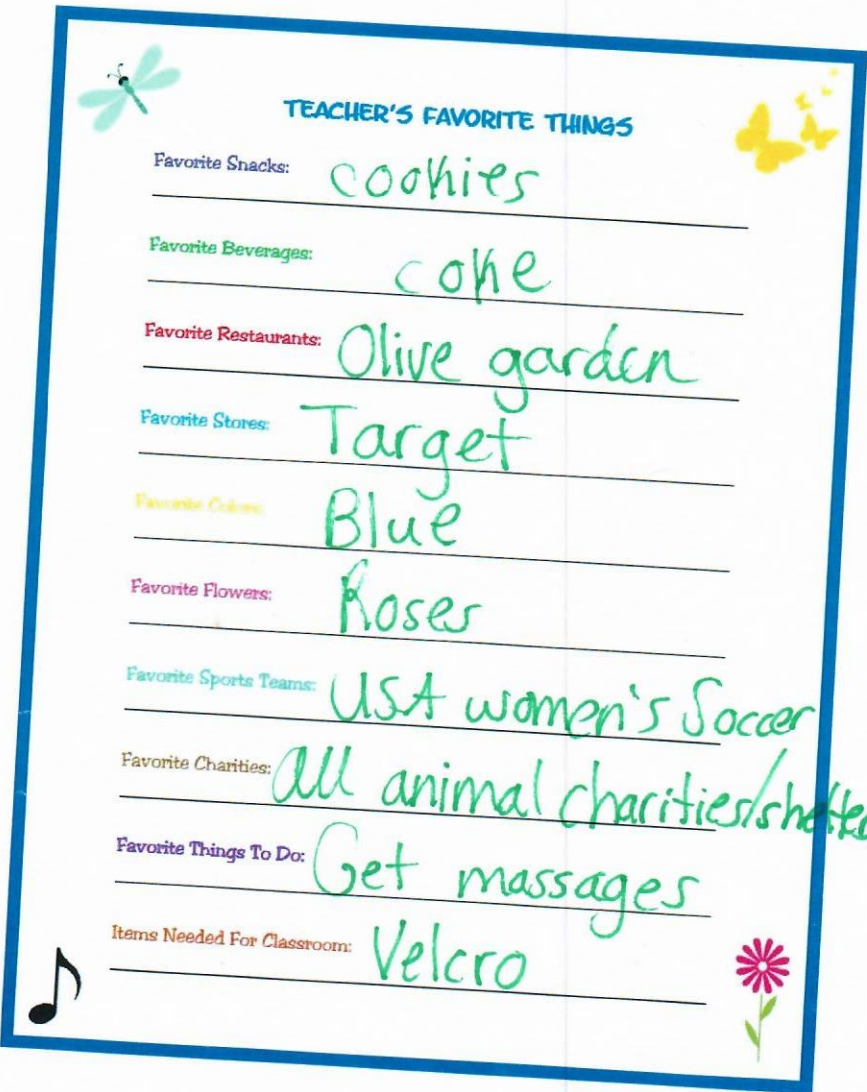 TEACHER'S FAVORITE THINGS
Favorite Snacks: cookies
Favorite Beverages: coke
Favorite Restaurants: Olive garden
Favorite Stores: Target
Favorite Colors: Blue
Favorite Flowers: Roses
Favorite Sports Teams: USA women's Soccer
Favorite Charities: All animal charities/shelter
Favorite Things To Do: Get massages
Items Needed For Classroom: Velcro